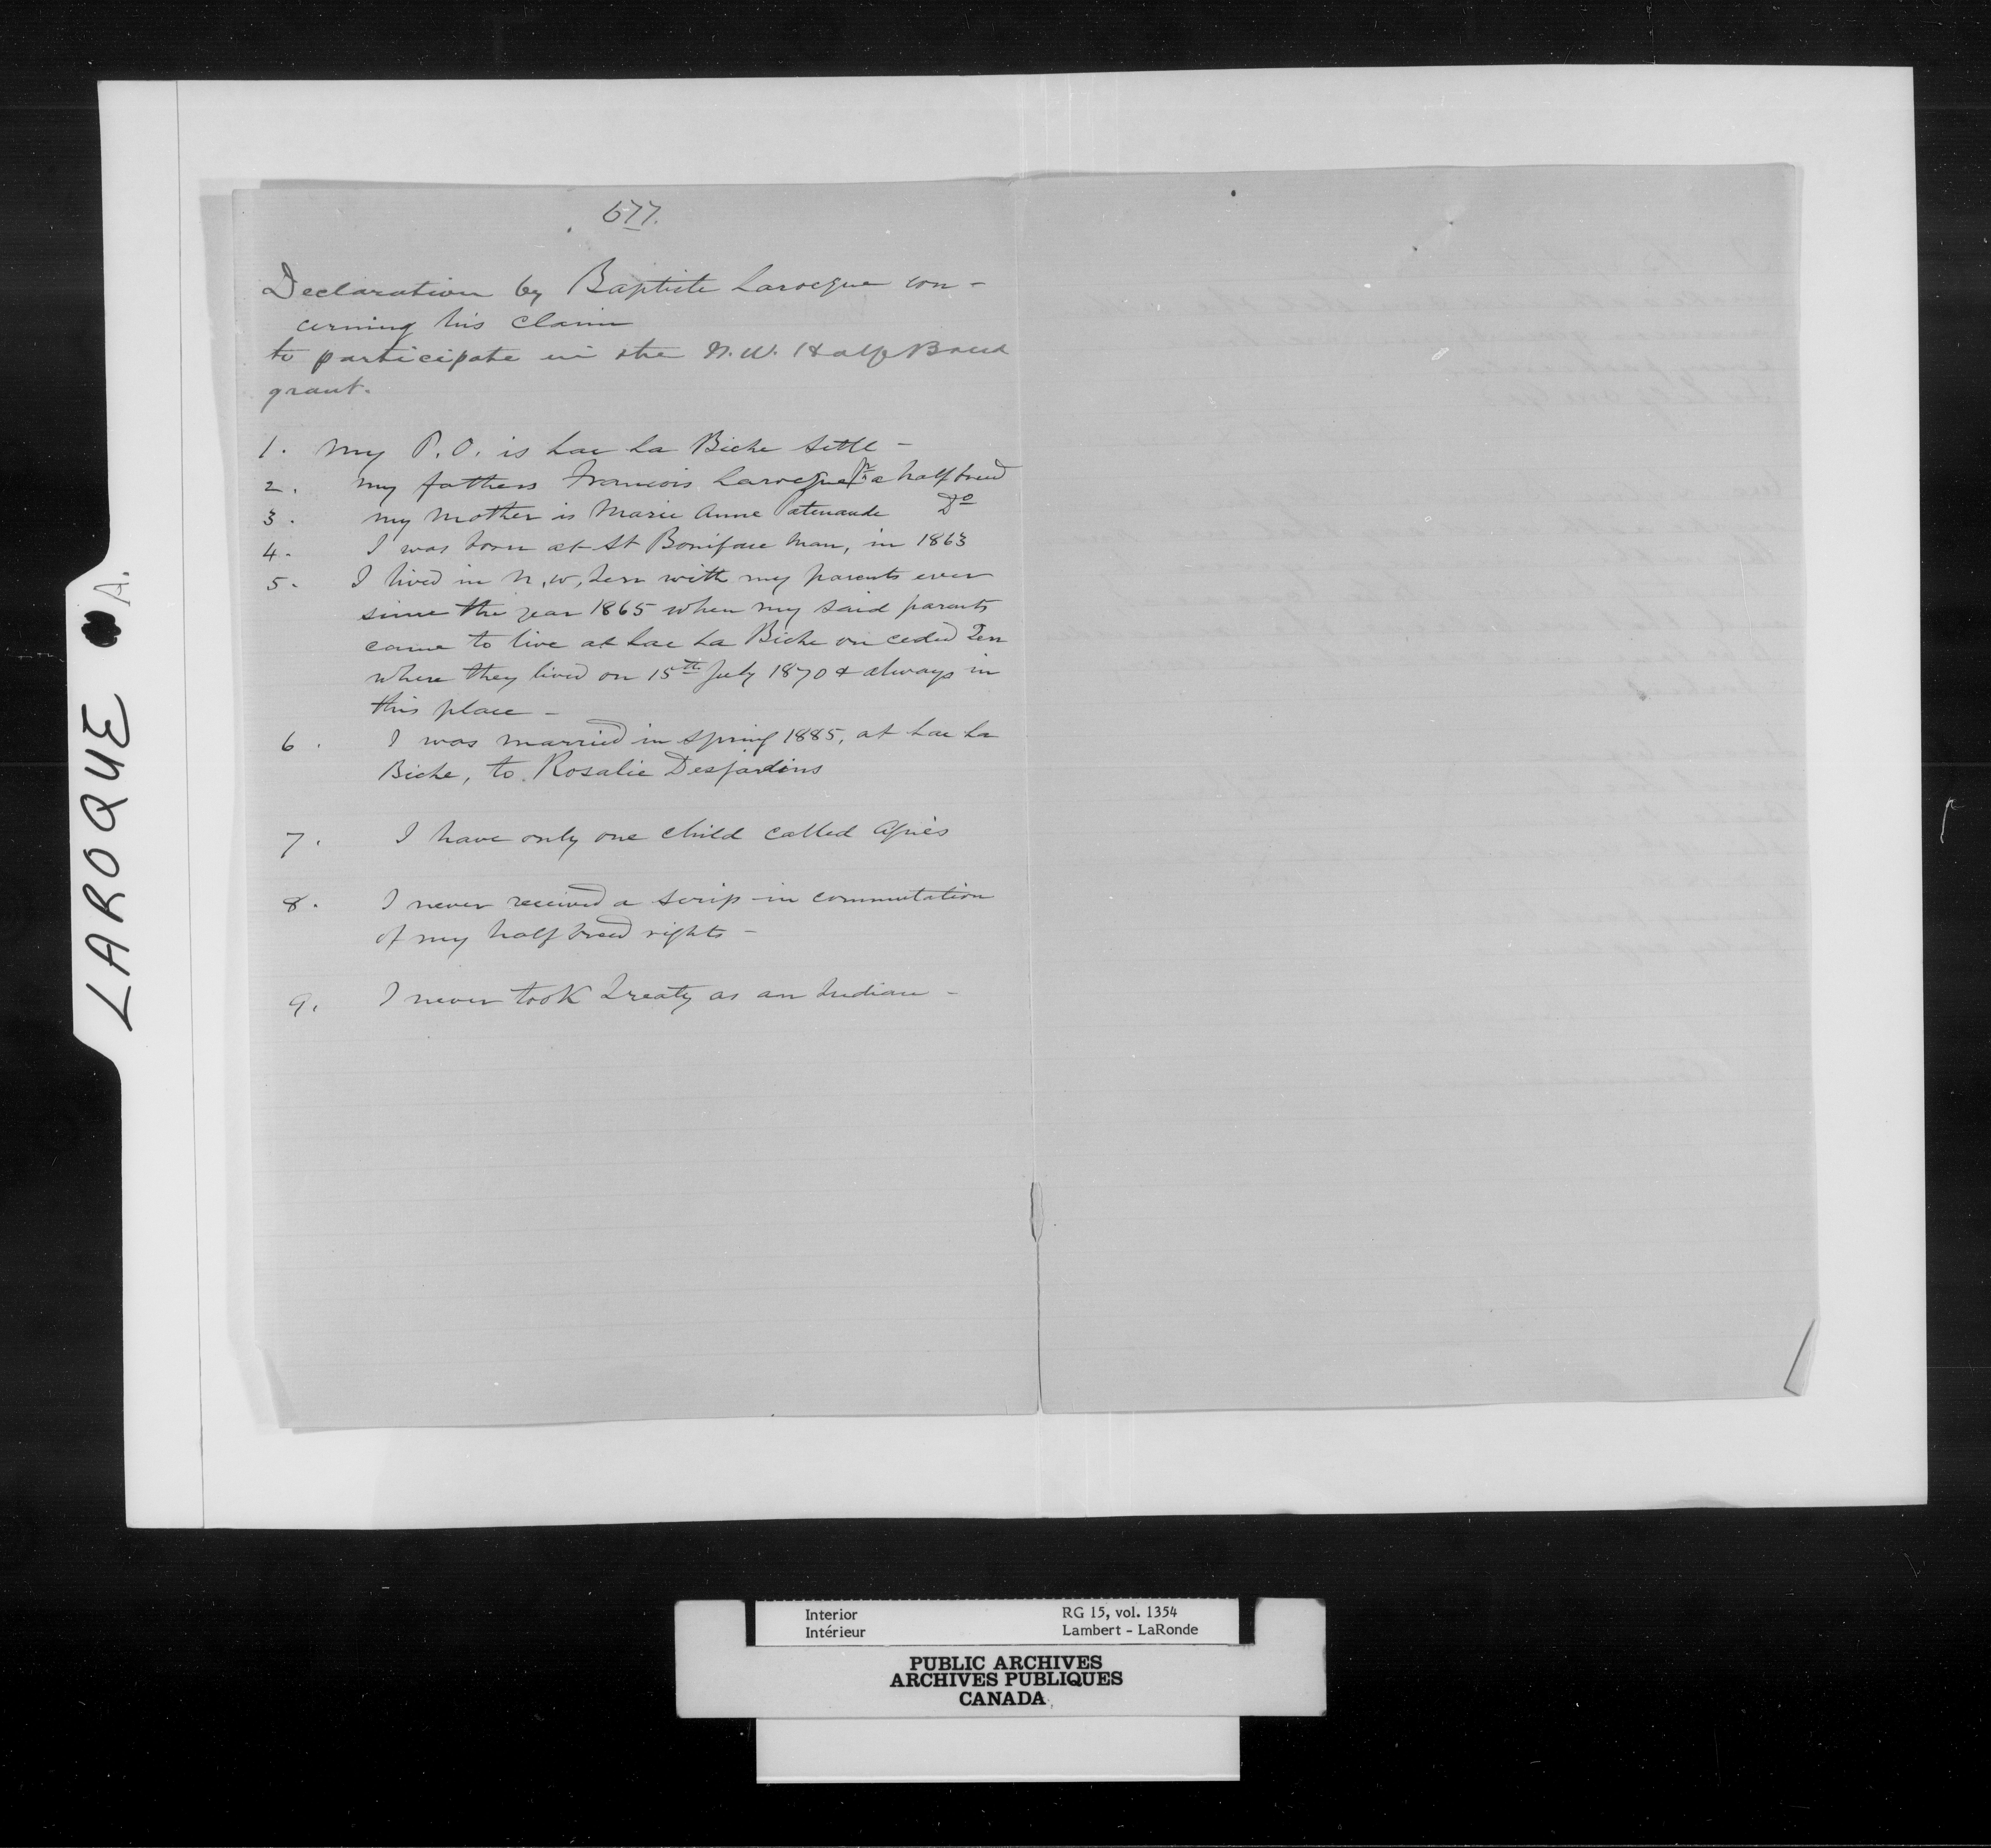 677.
Declaration by Baptiste Larocque con-
cerning his claim
to participate in the N.W. Half Breed
grant.
1. My P.O. is Lac La Biche Settl-
2. my fathers Francois Larocque Sr a half breed
3. my mother is Marie Anne Patenaude Do
4. I was born at St Boniface Man, in 1863
5. I lived in N.W. Terr with my parents ever
since the year 1865 when my said parents
came to live at Lac La Biche on ceded Terr
where they lived on 15th July 1870 & always in
this place -
6. I was married in spring 1885, at Lac La
Biche, to Rosalie Desjardins
7. I have only one child called Agnès
8. I never received a scrip in commutation
of my half breed rights -
9. I never took treaty as an Indian -
LAROQUE A.
Interior
Intérieur
RG 15, vol. 1354
Lambert - LaRonde
PUBLIC ARCHIVES
ARCHIVES PUBLIQUES
CANADA